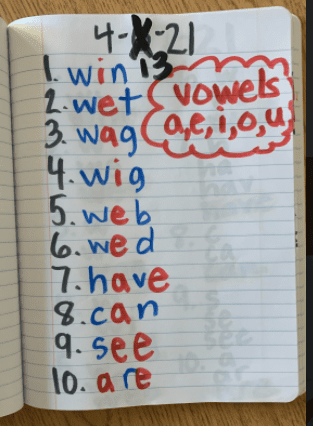 4-13-21
1. win
vowels
2. wet
a,e,i,o,u
3. wag
4. wig
5. web
6. wed
7. have
8. can
9. see
10. are